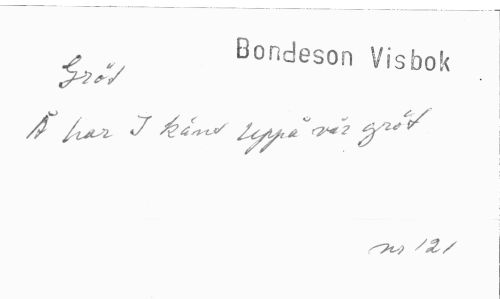 Bondeson Visbok
Gröt
Å har I känt uppå vår gröt
nr 121